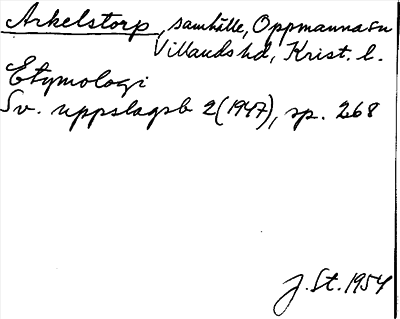 Arkelstorp, samhälle, Oppmanna sn
Villands hd, Krist. l.
Etymologi
Sv. uppslagsb 2 (1947), sp. 268
J. St. 1954